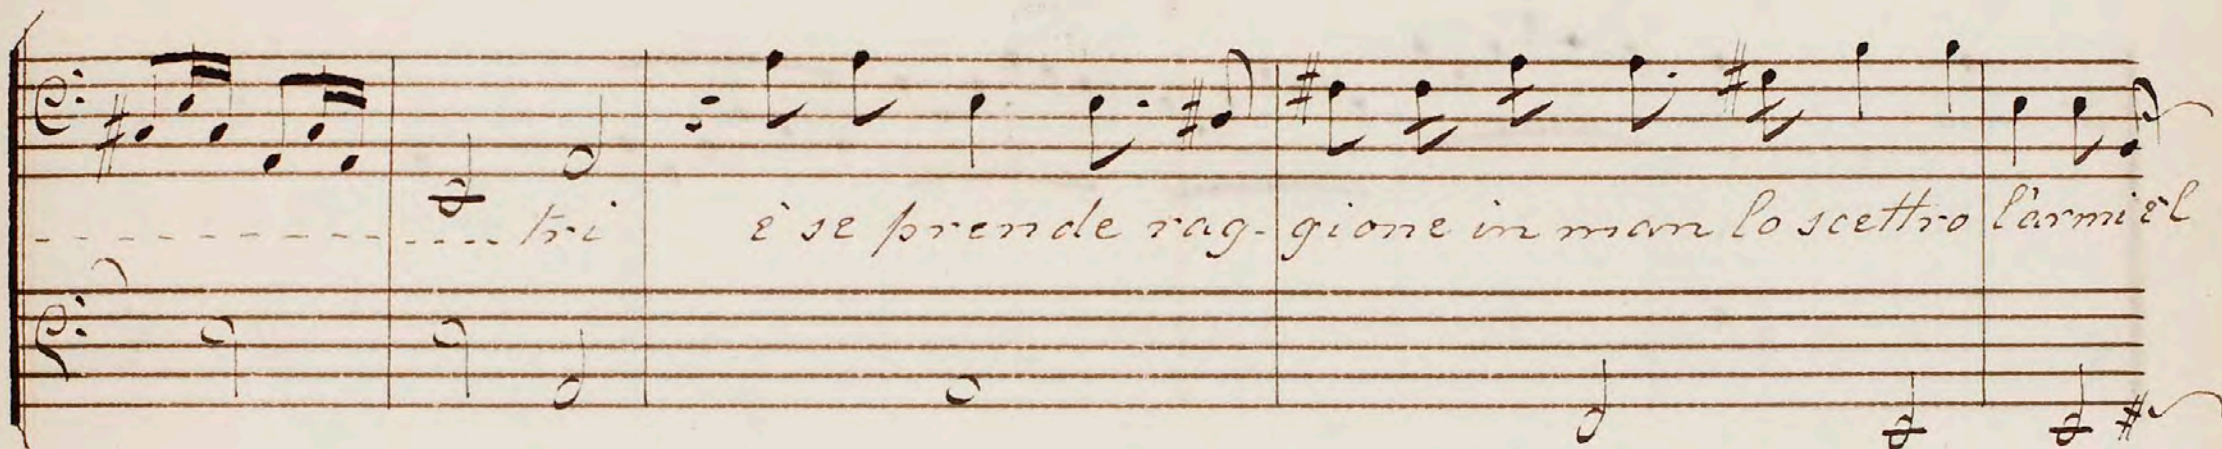 --------------- tri è se prende rag-gione in man lo scettro l'armi e'l